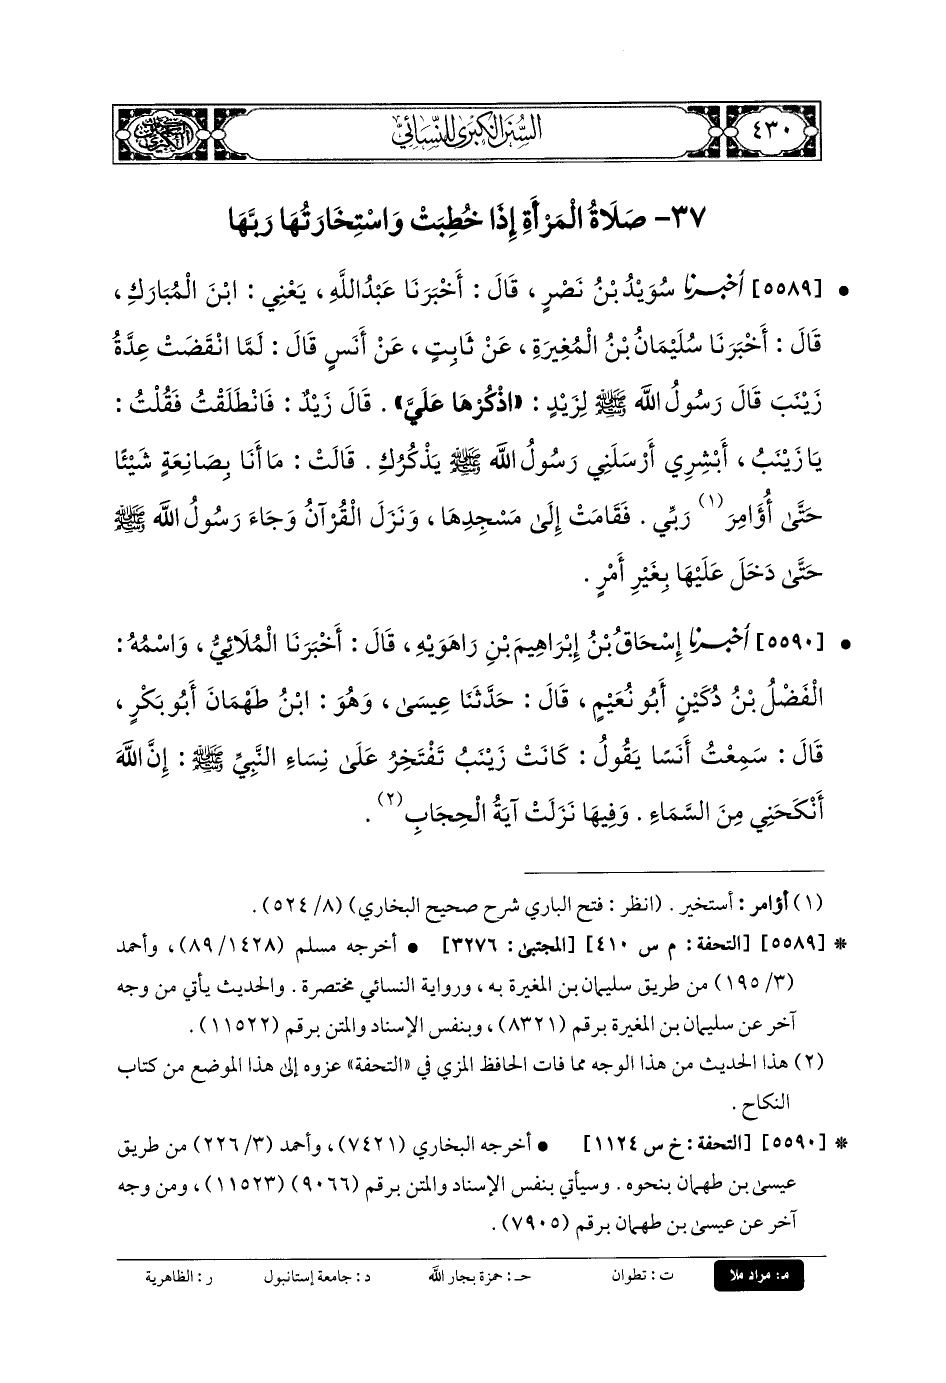 ٤٣٠
السُّنَنُ الكُبْرَى لِلنَّسَائِيِّ
٣٧- صَلَاةُ الْمَرْأَةِ إِذَا خُطِبَتْ وَاسْتِخَارَتُهَا رَبَّهَا
• [٥٥٨٩] أخبرنا سُوَيْدُ بْنُ نَصْرٍ، قَالَ : أَخْبَرَنَا عَبْدُاللَّهِ، يَعْنِي : ابْنَ الْمُبَارَكِ،
قَالَ : أَخْبَرَنَا سُلَيْمَانُ بْنُ الْمُغِيرَةِ، عَنْ ثَابِتٍ، عَنْ أَنَسٍ قَالَ : لَمَّا انْقَضَتْ عِدَّةُ
زَيْنَبَ قَالَ رَسُولُ اللَّه ﷺ لِزَيْدٍ : «اذْكُرْهَا عَلَيَّ» . قَالَ زَيْدٌ : فَانْطَلَقْتُ فَقُلْتُ :
يَا زَيْنَبُ، أَبْشِرِي أَرْسَلَنِي رَسُولُ اللَّه ﷺ يَذْكُرُكِ . قَالَتْ : مَا أَنَا بِصَانِعَةٍ شَيْئًا
حَتَّى أُؤَامِرَ(١) رَبِّي . فَقَامَتْ إِلَى مَسْجِدِهَا، وَنَزَلَ الْقُرْآنُ وَجَاءَ رَسُولُ اللَّه ﷺ
حَتَّى دَخَلَ عَلَيْهَا بِغَيْرِ أَمْرٍ .
• [٥٥٩٠] أخبرنا إِسْحَاقُ بْنُ إِبْرَاهِيمَ بْنِ رَاهَوَيْهِ، قَالَ : أَخْبَرَنَا الْمُلَائِيُّ، وَاسْمُهُ :
الْفَضْلُ بْنُ دُكَيْنٍ أَبُو نُعَيْمٍ، قَالَ : حَدَّثَنَا عِيسَى، وَهُوَ : ابْنُ طَهْمَانَ أَبُو بَكْرٍ،
قَالَ : سَمِعْتُ أَنَسًا يَقُولُ : كَانَتْ زَيْنَبُ تَفْتَخِرُ عَلَى نِسَاءِ النَّبِيِّ ﷺ : إِنَّ اللَّهَ
أَنْكَحَنِي مِنَ السَّمَاءِ . وَفِيهَا نَزَلَتْ آيَةُ الْحِجَابِ(٢) .
(١) أؤامر : أستخير . (انظر : فتح الباري شرح صحيح البخاري) (٨/ ٥٢٤).
* [٥٥٨٩] [التحفة: م س ٤١٠] [المجتبى: ٣٢٧٦] • أخرجه مسلم (١٤٢٨/ ٨٩)، وأحمد
(٣/ ١٩٥) من طريق سليمان بن المغيرة به، ورواية النسائي مختصرة . والحديث يأتي من وجه
آخر عن سليمان بن المغيرة برقم (٨٣٢١)، وبنفس الإسناد والمتن برقم (١١٥٢٢).
(٢) هذا الحديث من هذا الوجه مما فات الحافظ المزي في «التحفة» عزوه إلى هذا الموضع من كتاب
النكاح .
* [٥٥٩٠] [التحفة: خ س ١١٢٤] • أخرجه البخاري (٧٤٢١)، وأحمد (٣/ ٢٢٦) من طريق
عيسى بن طهمان بنحوه . وسيأتي بنفس الإسناد والمتن برقم (٩٠٦٦) (١١٥٢٣)، ومن وجه
آخر عن عيسى بن طهمان برقم (٧٩٠٥).
مـ: مراد ملا ت: تطوان حـ: حمزة بجار الله د: جامعة إستانبول ر: الظاهرية